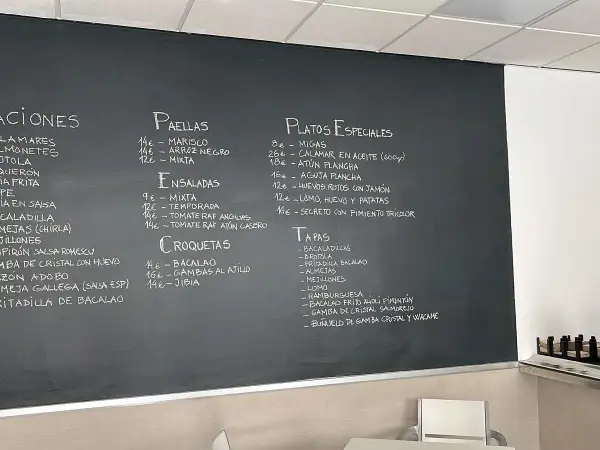 ACIONES
LAMARES
LMONETES
OTOLA
QUERÓN
IA FRITA
PE
IA EN SALSA
CALADILLA
MEJAS (CHIRLA)
JILLONES
IPIRÓN SALSA ROMESCU
MBA DE CRISTAL CON HUEVO
ZÓN ADOBO
MEJA GALLEGA (SALSA ESP)
RITADILLA DE BACALAO
PAELLAS
14€ - MARISCO
14€ - ARROZ NEGRO
12€ - MIXTA
ENSALADAS
9€ - MIXTA
12€ - TEMPORADA
14€ - TOMATE RAF ANGULAS
14€ - TOMATE RAF ATÚN CASERO
CROQUETAS
14€ - BACALAO
16€ - GAMBAS AL AJILLO
14€ - JIBIA
PLATOS ESPECIALES
8€ - MIGAS
26€ - CALAMAR EN ACEITE (600gr)
18€ - ATÚN PLANCHA
16€ - AGUJA PLANCHA
12€ - HUEVOS ROTOS CON JAMÓN
12€ - LOMO, HUEVO Y PATATAS
16€ - SECRETO CON PIMIENTO TRICOLOR
TAPAS
- BACALADILLAS
- BROTOLA
- FRITADILLA BACALAO
- ALMEJAS
- MEJILLONES
- LOMO
- HAMBURGUESA
- BACALAO FRITO ALIOLI PIMENTÓN
- GAMBA DE CRISTAL SALMOREJO
- BUÑUELO DE GAMBA CRISTAL Y WACAME